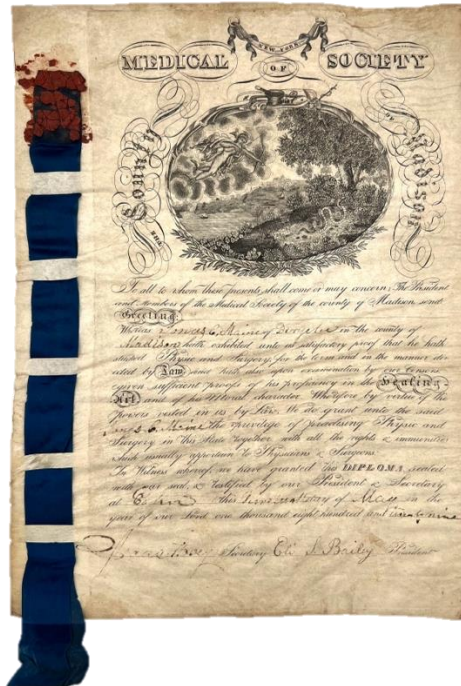 NEW-YORK
MEDICAL OF SOCIETY
County of Madison
To all to whom these presents shall come or may concern; The President
and Members of the Medical Society of the county of Madison send
Greeting.
Whereas in the county of
Madison hath exhibited unto us satisfactory proof that he hath
studied Physic and Surgery, for the term and in the manner
by Law and hath also upon examination by our censors
given sufficient proofs of his proficiency in the Healing
Art, and of his Moral character Wherefore by vertue of the
powers vested in us by Law. We do grant unto the said
the privilege of practising Physic and
Surgery in this State together with all the rights & immunities
which usually appertain to Physicians & Surgeons.
In Witness whereof we have granted this DIPLOMA sealed
with our seal, & testified by our President & Secretary
at this day of May in the
year of our Lord one thousand eight hundred and
Secretary Eli S Baily President